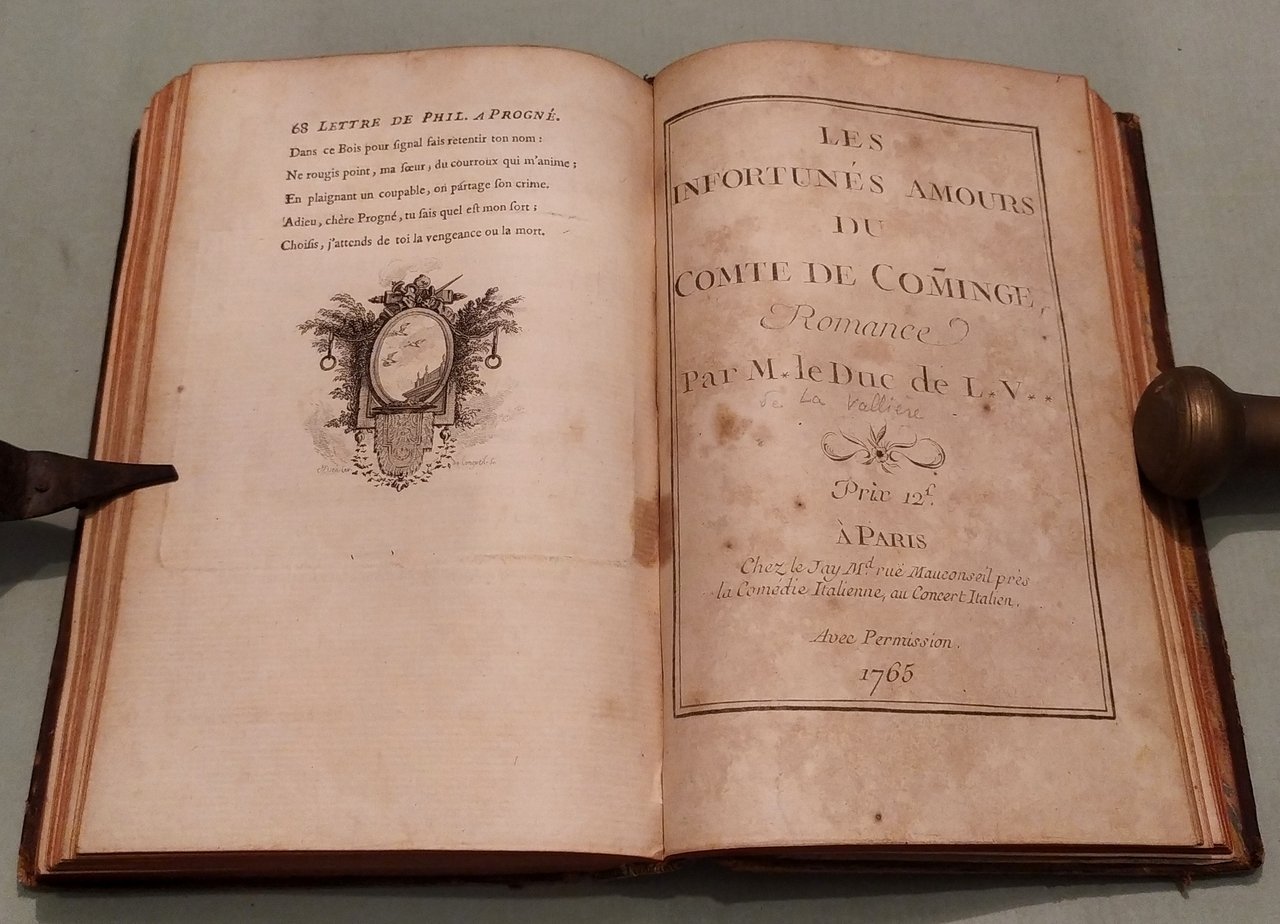 68 LETTRE DE PHIL. A PROGNÉ.
Dans ce Bois pour ſignal fais retentir ton nom :
Ne rougis point, ma ſœur, du courroux qui m'anime ;
En plaignant un coupable, on partage ſon crime.
Adieu, chère Progné, tu ſais quel eſt mon ſort ;
Choiſis, j'attends de toi la vengeance ou la mort.
LES
INFORTUNÉS AMOURS
DU
COMTE DE COM̄INGE,
Romance
Par M. le Duc de L. V**
de La Vallière
Prix 12ſ.
À PARIS
Chez le Jay Md. ruë Mauconseil près
la Comédie Italienne, au Concert Italien.
Avec Permission.
1765